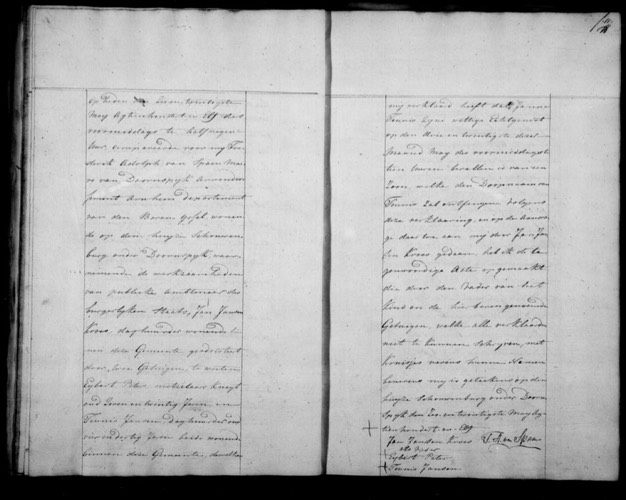 op heden den seven twintigste
May Agtienhondert en Elf des
voormiddags te half negen
uur, compareerde voor my Fre
derik Adolph van Spaen Mai
re van Doornspyk Arrondis
sement Arnhem departement
van den Boven Yssel wonen
de op den huyse Schouwen
burg onder Doornspyk waar
nemende de werkzaamheden
van publicke Ambtenaar des
burgerlyken Staats, Jan Jansen
Kroes daghuurder wonende bin
nen dese Gemeente geadsisteert
door twee Getuigen te weeten
Egbert Peter metselaar knegt
oud Seven en twintig Jaren en
Teunis Jansen Daghuurder oud
vierendertig Jaren beide wonende
binnen dese Gemeente, dewelke
my verklaard heeft dat Janna
Teunis zyne wettige Echtgenoot
op den en twintigste deser
Maand May des voormiddags te
tien uuren bevallen is van een
Zoon welke den Doopnaam van
Teunis zal ontfangen volgens
dese verklaaring, en op de aanvra
ge daar toe aan my door Jan Jan
sen Kroes gedaan heb ik de te
genwoordige Acte op gemaakt
die door den Vader van het
Kind en de hier boven genoemde
Getuigen, welke alle verklaarden
niet te kunnen schryven, met
kruisjes nevens hunne Namen
benevens my is geteekend op den
huyse Schouwenburg onder Doorn
spyk den Seven en twintigste May Ag
tienhondert en Elf
Jan Jansen Kroes
als Vader
Egbert Peter
Teunis Jansen